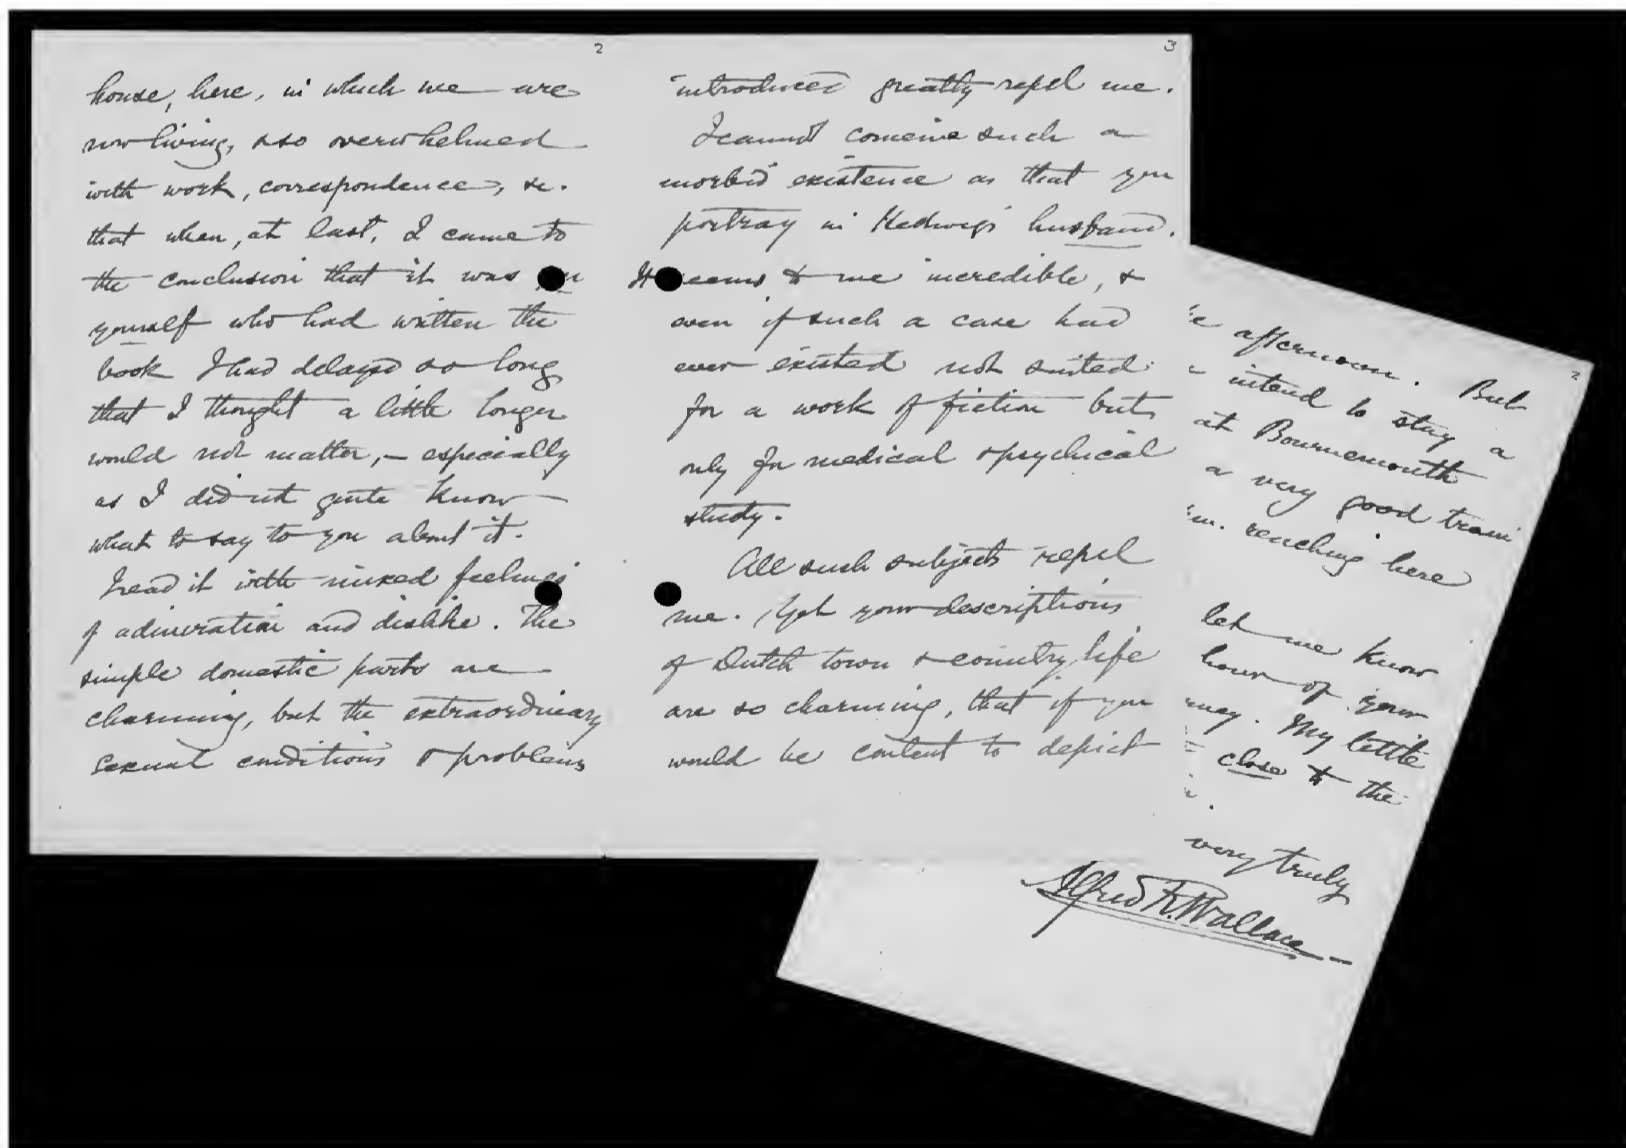 2
house, here, in which we are
now living, & so overwhelmed
with work, correspondence, &c.
that when, at last, I came to
the conclusion that it was
yourself who had written the
book I had delayed so long
that I thought a little longer
would not matter, — especially
as I did not quite know
what to say to you about it.
I read it with mixed feelings
of admiration and dislike. The
simple domestic parts are
charming, but the extraordinary
sexual conditions & problems
3
introduced greatly repel me.
I cannot conceive such a
morbid existence as that you
portray in Hedwig's husband.
It seems to me incredible, &
even if such a case had
ever existed not suited
for a work of fiction but
only for medical & psychical
study.
All such subjects repel
me. Yet your descriptions
of Dutch town & country life
are so charming, that if you
would be content to depict
2
afternoon. But
intend to stay a
at Bournemouth
a very good train
reaching here
let me know
hour of your
My little
close to the
very truly
Alfred R. Wallace